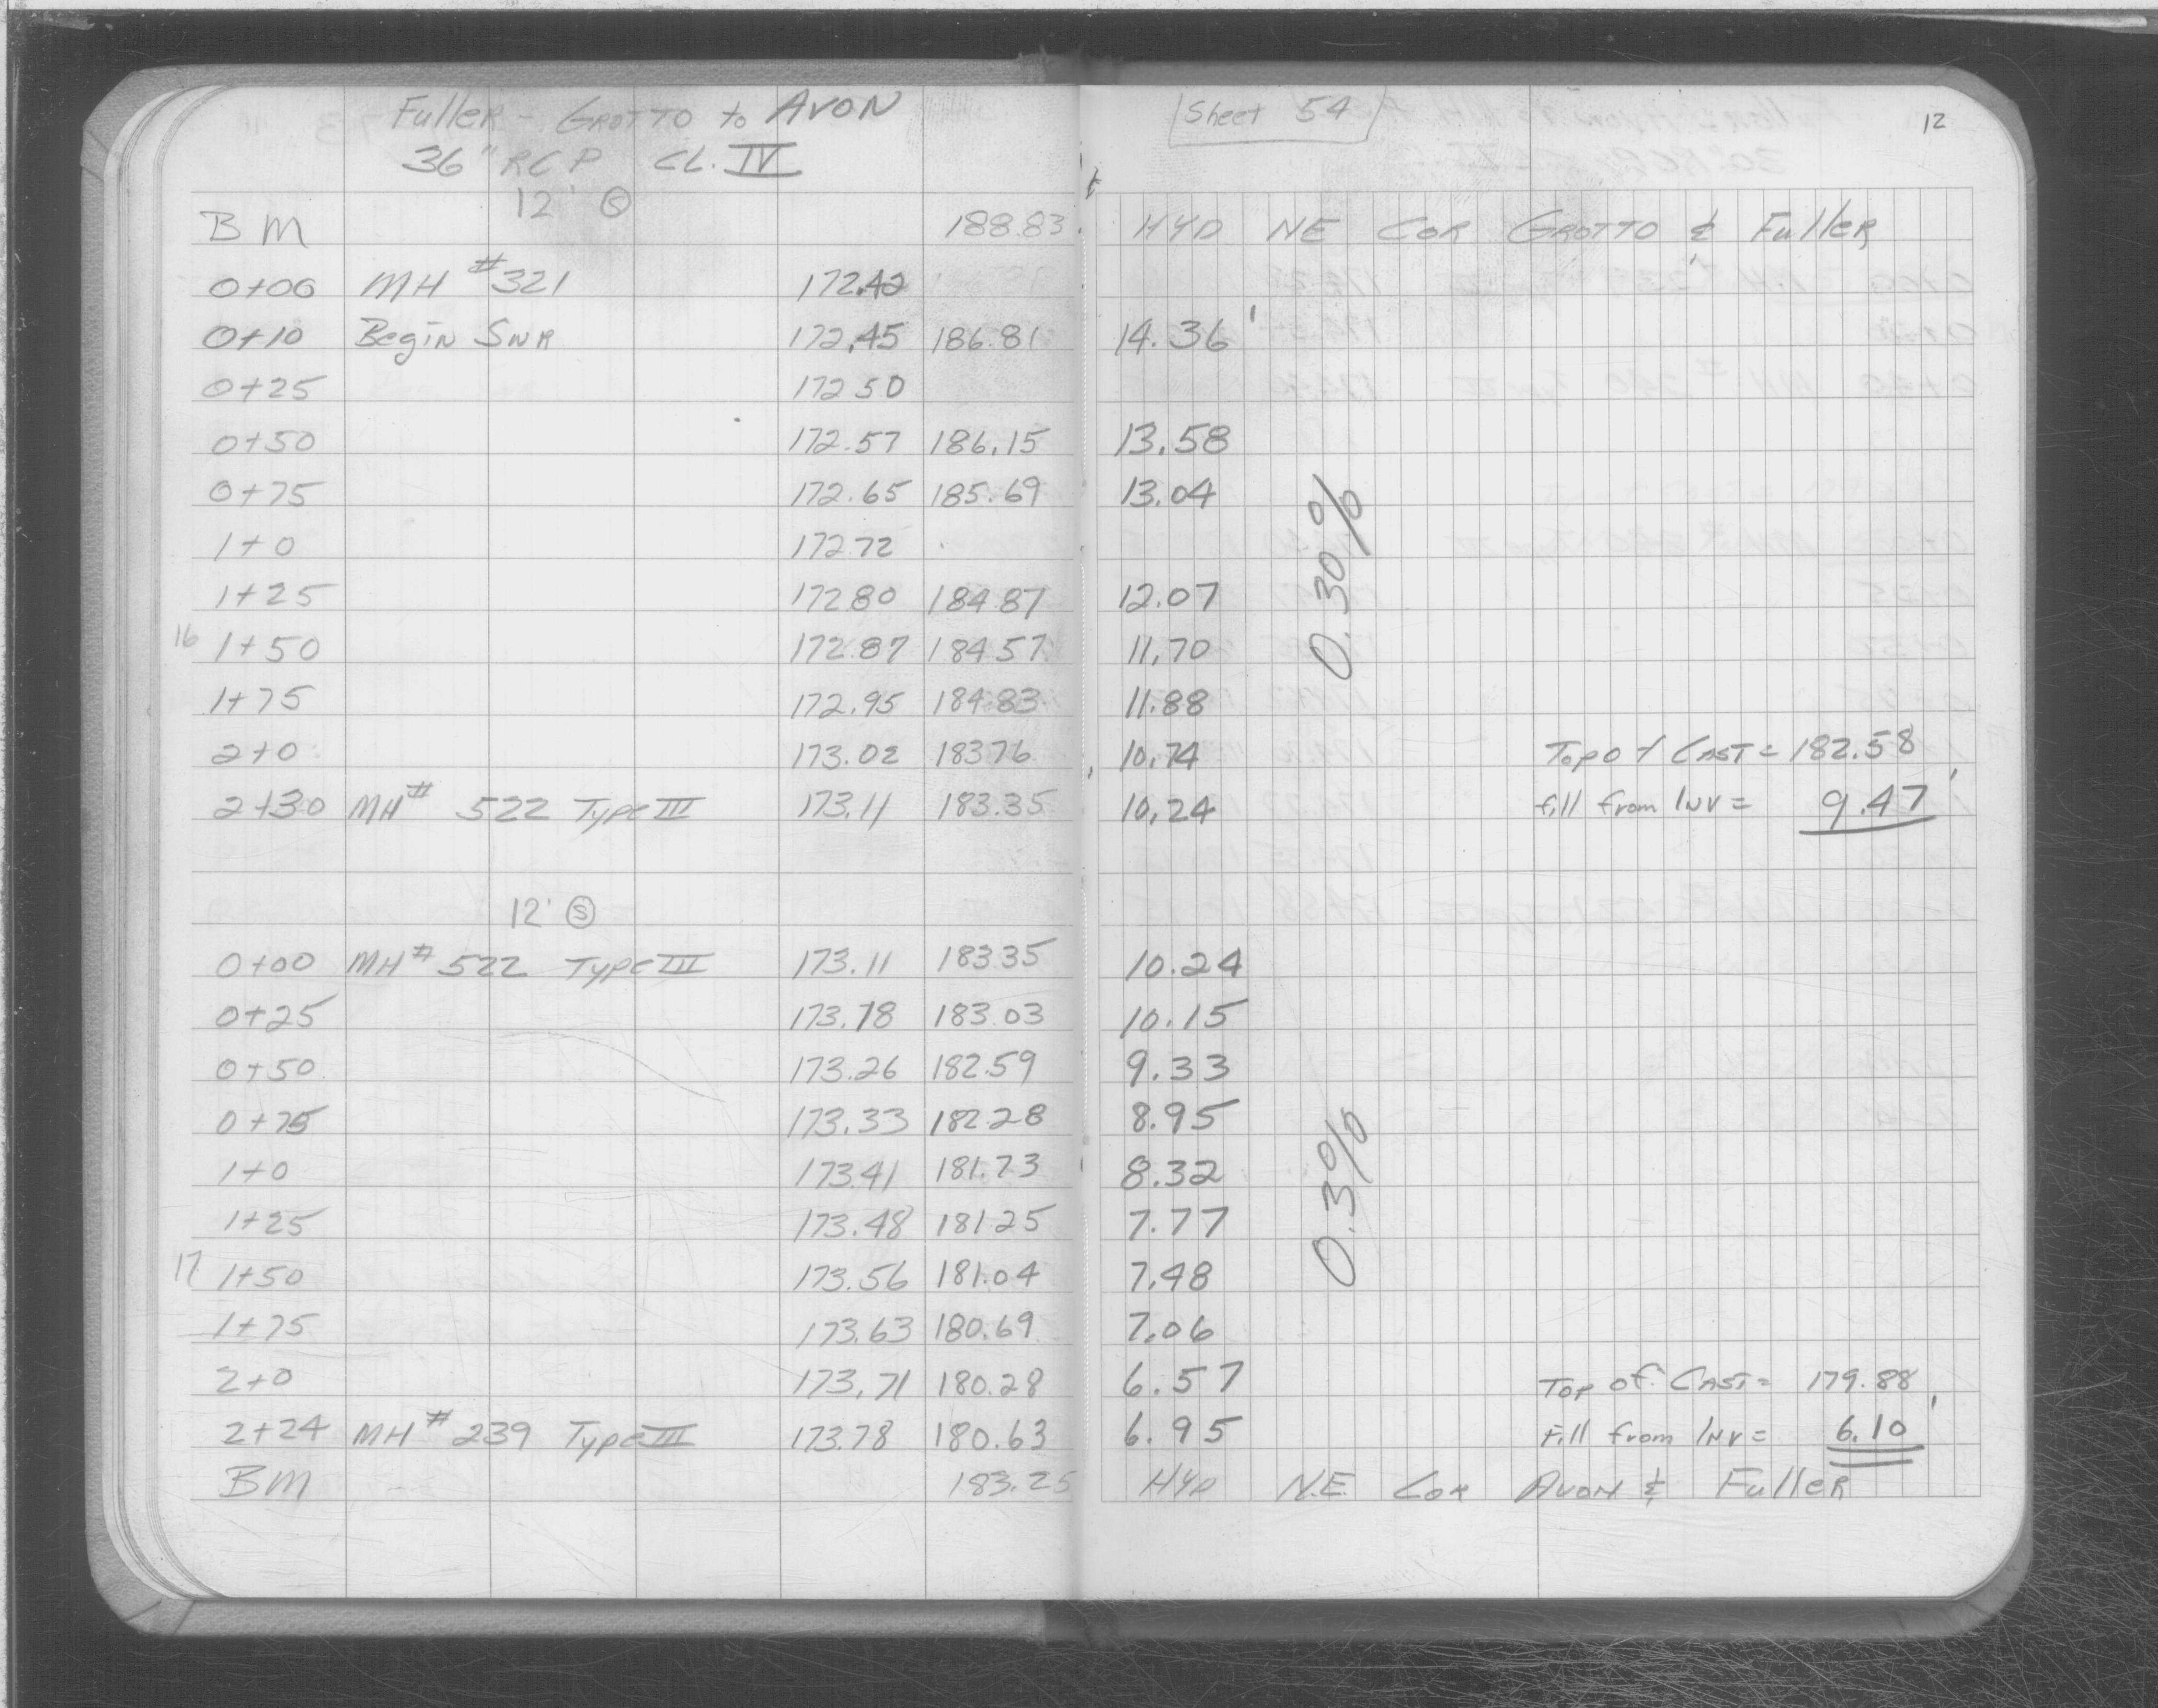 Fuller - Grotto to Avon
36" RCP CL. IV
12' Ⓢ
Sheet 54
12
BM 188.83 HYD NE Cor Grotto & Fuller
0+00 MH #321 172.42
0+10 Begin Swr 172.45 186.81 14.36'
0+25 172 50
0+50 172.57 186.15 13.58
0+75 172.65 185.69 13.04
1+0 172 72
1+25 172 80 184.87 12.07
16 1+50 172.87 184 57 11.70
1+75 172.95 184.83 11.88
0.30%
2+0 173.02 183 76 10.74 Top of Cast = 182.58
2+30 MH# 522 Type III 173.11 183.35 10.24 fill from Inv = 9.47'
12' Ⓢ
0+00 MH# 522 Type III 173.11 183 35 10.24
0+25 173.18 183.03 10.15
0+50 173.26 182.59 9.33
0+75 173.33 182.28 8.95
1+0 173.41 181.73 8.32
1+25 173.48 181 25 7.77
17 1+50 173.56 181.04 7.48
0.3%
1+75 173.63 180.69 7.06
2+0 173.71 180.28 6.57 Top of Cast = 179.88
2+24 MH# 239 Type III 173.78 180.63 6.95 Fill from Inv = 6.10'
BM 183.25 HYD N.E. Cor Avon & Fuller